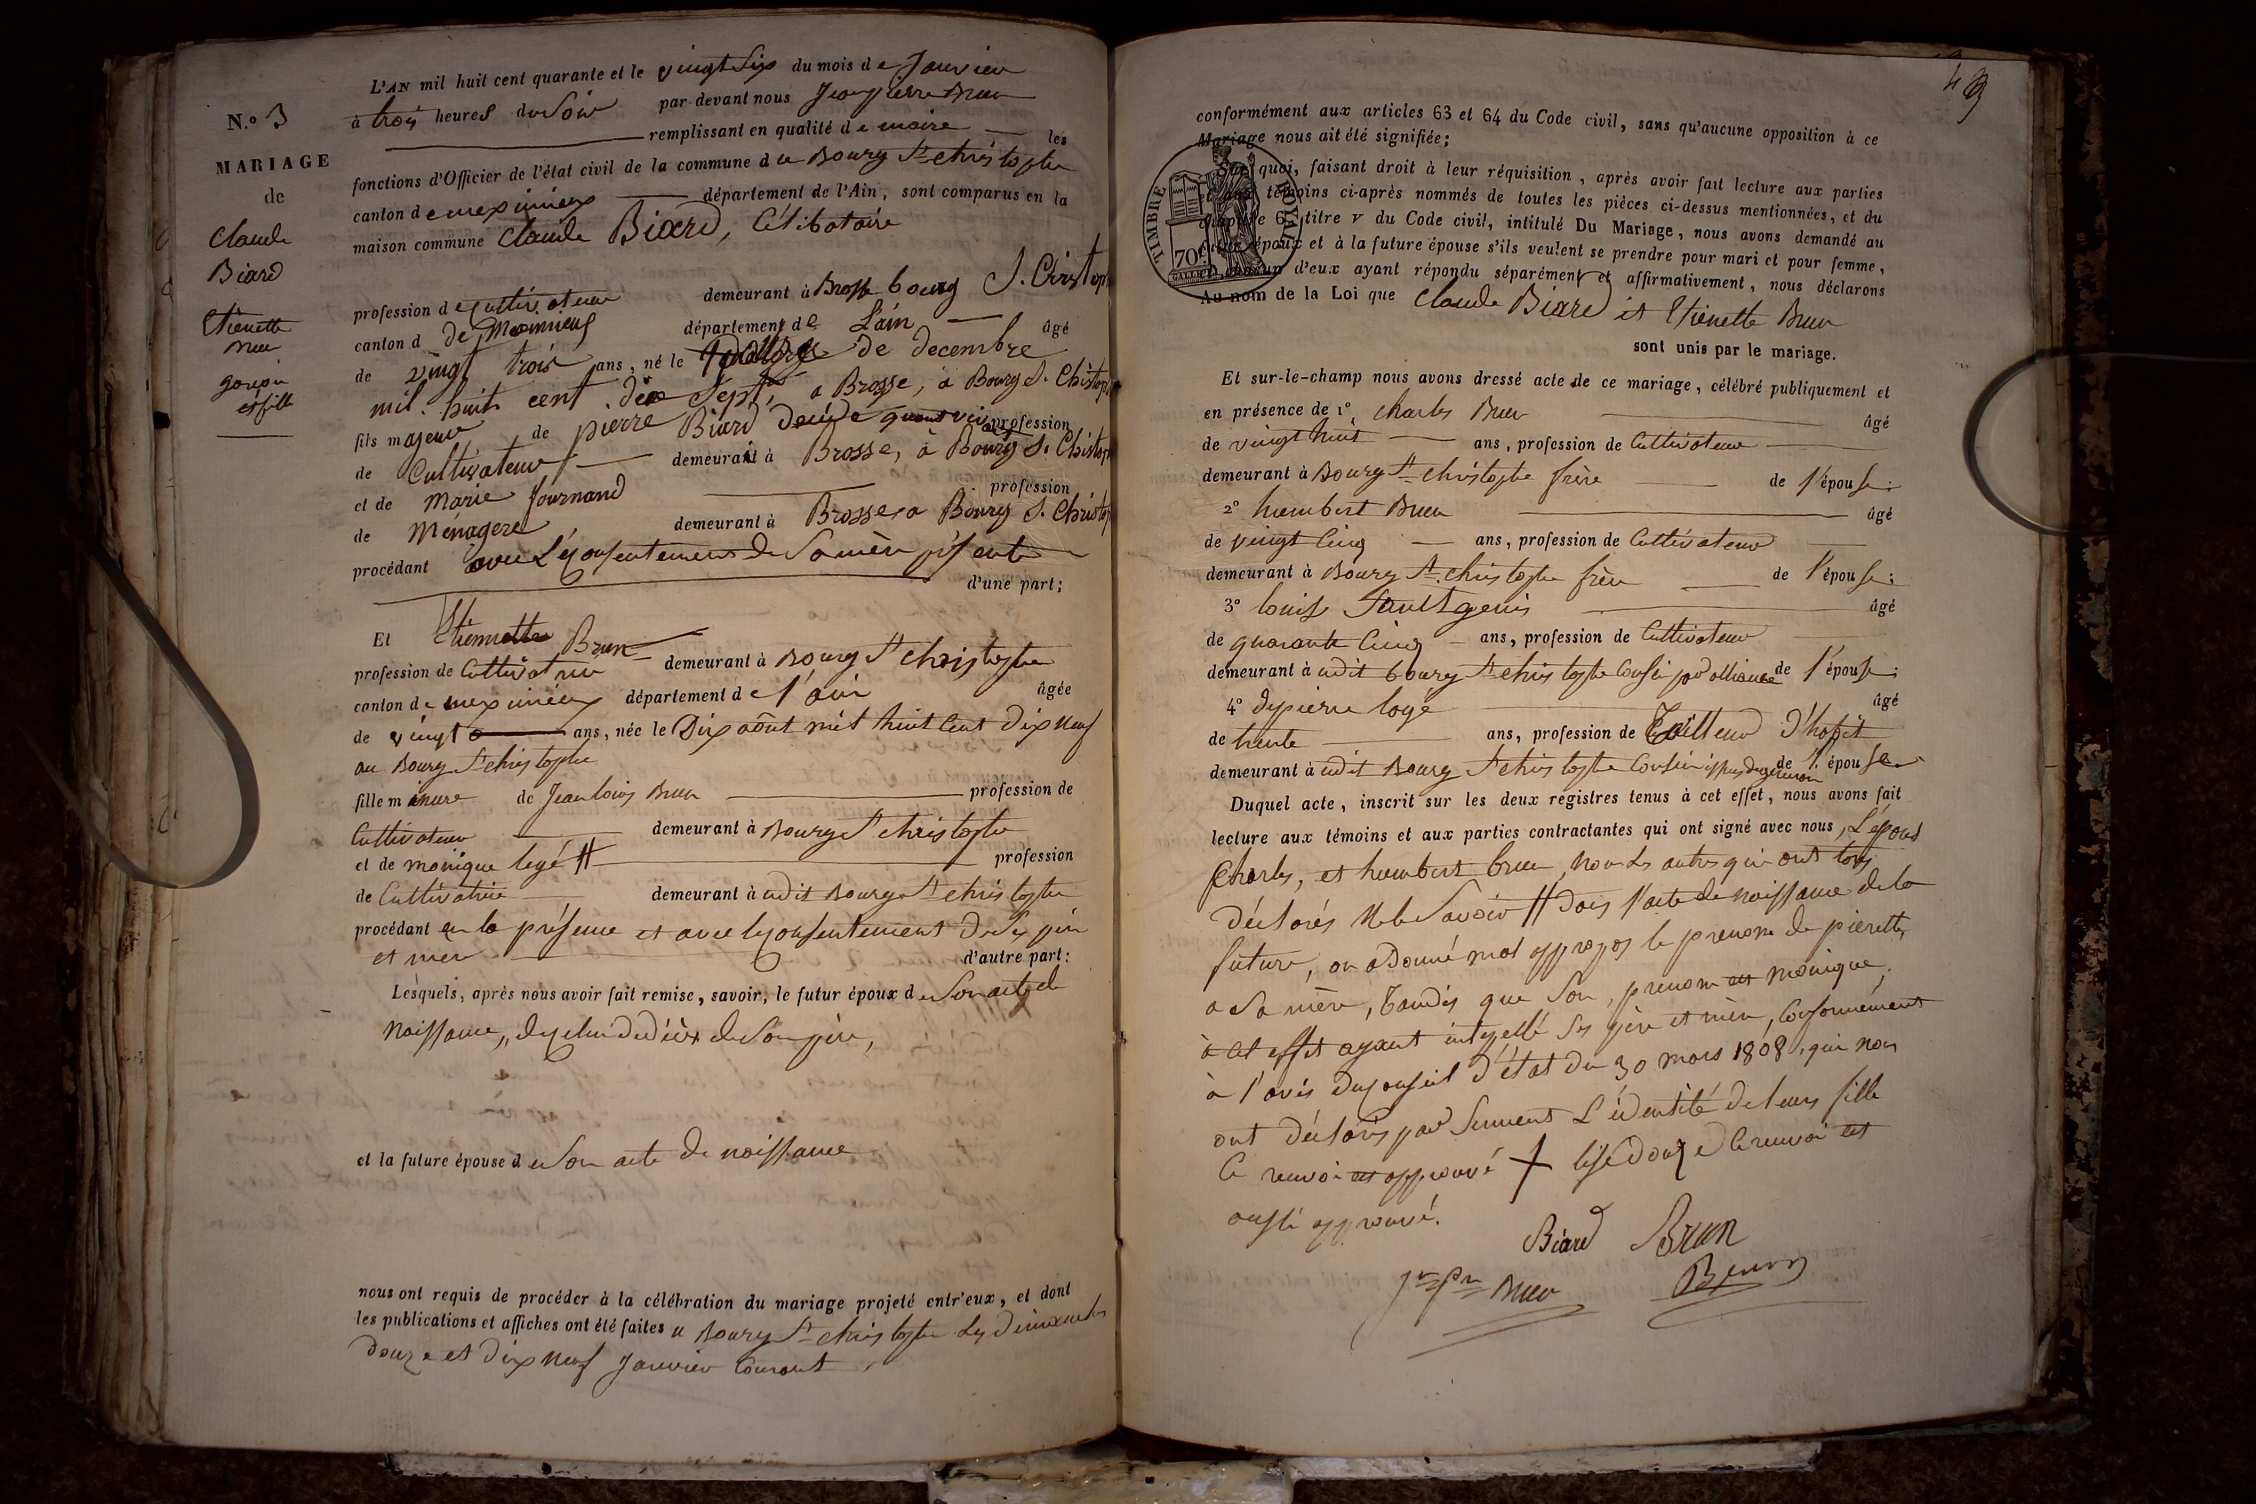 N.º 3
MARIAGE
de
Claude
Biard
Etienette
Brun
garçon
et fille
L'AN mil huit cent quarante et le vingt Six du mois de Janvier
à trois heures du Soir par-devant nous Jean pierre Brun
remplissant en qualité de maire les
fonctions d'Officier de l'état civil de la commune du Bourg St christophe
canton de meximieux département de l'Ain, sont comparus en la
maison commune Claude Biard, Célibataire
profession de Cultivateur demeurant à Brosse bourg S. Christophe
canton de Meximieux département de L'ain âgé
de vingt trois ans, né le de decembre
mil huit cent dix Sept, a Brosse, à Bourg S. Christophe
fils majeur de pierre Biard décédé profession
de Cultivateur demeurant à Brosse, à Bourg S. Christophe
et de Marie Journand profession
de Ménagere demeurant à Brosse a Bourg S. Christophe
procédant avec Le consentement de Sa mère présente
d'une part;
Et Etiennette Brun
profession de Cultivatrice demeurant à Bourg St christophe
canton de meximieux département de l'ain âgée
de vingt ans, née le Dix août mil huit Cent Dix Neuf
au Bourg St christophe
fille mineure de Jean louis Brun profession de
Cultivateur demeurant à Bourg St christophe
et de monique logé # profession
de Cultivatrice demeurant à udit Bourg St christophe
procédant en la présence et avec le consentement De Ses père
et mere d'autre part:
Lesquels, après nous avoir fait remise, savoir, le futur époux de Son acte de
Naissance, de celui de décès de Son père,
et la future épouse de Son acte De naissance
nous ont requis de procéder à la célébration du mariage projeté entr'eux, et dont
les publications et affiches ont été faites a Bourg St christophe Les Dimanches
Douze et Dix neuf Janvier Courant
conformément aux articles 63 et 64 du Code civil, sans qu'aucune opposition à ce
Mariage nous ait été signifiée;
Sur quoi, faisant droit à leur réquisition, après avoir fait lecture aux parties
et aux témoins ci-après nommés de toutes les pièces ci-dessus mentionnées, et du
chapitre 6, titre v du Code civil, intitulé Du Mariage, nous avons demandé au
futur époux et à la future épouse s'ils veulent se prendre pour mari et pour femme,
et chacun d'eux ayant répondu séparément et affirmativement, nous déclarons
Au nom de la Loi que Claude Biard et Etienette Brun
sont unis par le mariage.
TIMBRE ROYAL
70c
GALLE
Et sur-le-champ nous avons dressé acte de ce mariage, célébré publiquement et
en présence de 1º charles Brun âgé
de vingt huit ans, profession de Cultivateur
demeurant à Bourg St christophe frère de l'épouse;
2º humbert Brun âgé
de vingt Cinq ans, profession de Cultivateur
demeurant à Bourg St christophe frère de l'épouse;
3º louis Saultgenis âgé
de quarante Cinq ans, profession de Cultivateur
demeurant à udit bourg St christophe Cousin par alliance de l'épouse;
4º Depierre logé âgé
de trente ans, profession de Tailleur D'habit
demeurant à udit Bourg St christophe Cousin issus de germain de l'épouse
Duquel acte, inscrit sur les deux registres tenus à cet effet, nous avons fait
lecture aux témoins et aux parties contractantes qui ont signé avec nous, L'epoux
Charles, et humbert brun, Non Les autres qui ont tous
déclarés Ne le Savoir # Dans l'acte de naissance de la
future, on a Donné mal appropos le prenom de pierrette,
a Sa mère, tandis que Son prenom est monique,
à cet effet ayant intepellé Ses père et mère, Conformément
à l'avis du Conseil D'état Du 30 mars 1808, qui nous
ont déclarés par Serment L'identité De leurs fille
Ce renvoi est approuvé + Ce renvoi est
aussi approuvé.
Biard Brun
Jn pre Brun Brun